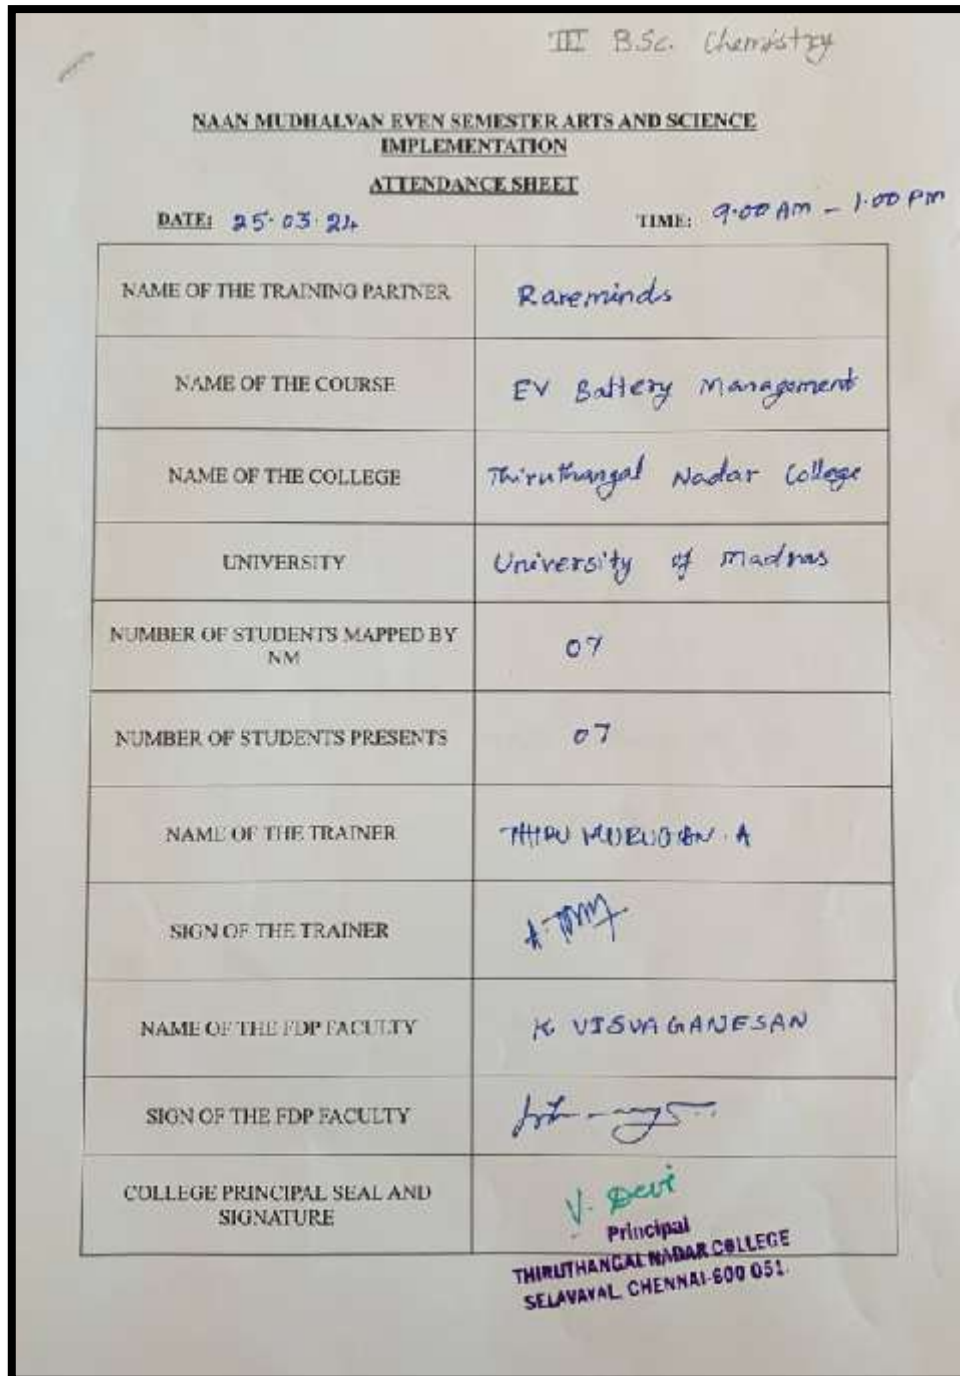 III B.Sc. Chemistry
NAAN MUDHALVAN EVEN SEMESTER ARTS AND SCIENCE
IMPLEMENTATION
ATTENDANCE SHEET
DATE: 25.03.24 TIME: 9.00 AM - 1.00 PM
NAME OF THE TRAINING PARTNER Rareminds
NAME OF THE COURSE EV Battery Management
NAME OF THE COLLEGE Thiruthangal Nadar College
UNIVERSITY University of Madras
NUMBER OF STUDENTS MAPPED BY
NM 07
NUMBER OF STUDENTS PRESENTS 07
NAME OF THE TRAINER THIRU MURUGAN. A
SIGN OF THE TRAINER
NAME OF THE FDP FACULTY K VISVAGANESAN
SIGN OF THE FDP FACULTY
COLLEGE PRINCIPAL SEAL AND
SIGNATURE V. Devi
Principal
THIRUTHANGAL NADAR COLLEGE
SELAVAYAL, CHENNAI-600 051.